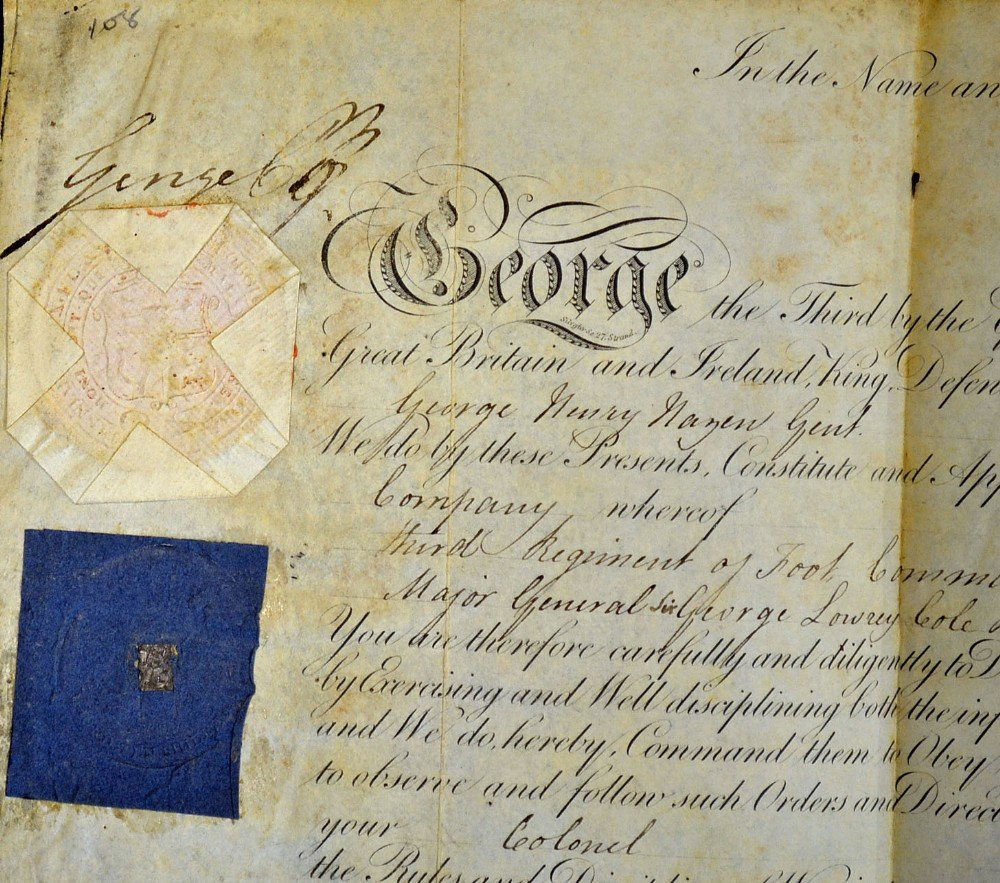 108
In the Name an
George P R
George
Sleight Sc 27, Strand
the Third by the
Great Britain and Ireland, King, Defen
George Henry Nazen Gent.
We do by these Presents, Constitute and App
Company whereof
third Regiment of Foot Comm
Major General Sir George Lowrey Cole
You are therefore carefully and diligently to D
by Exercising and Well disciplining both the inf
and We do hereby Command them to Obey
to observe and follow such Orders and Direc
your Colonel
the Rules and